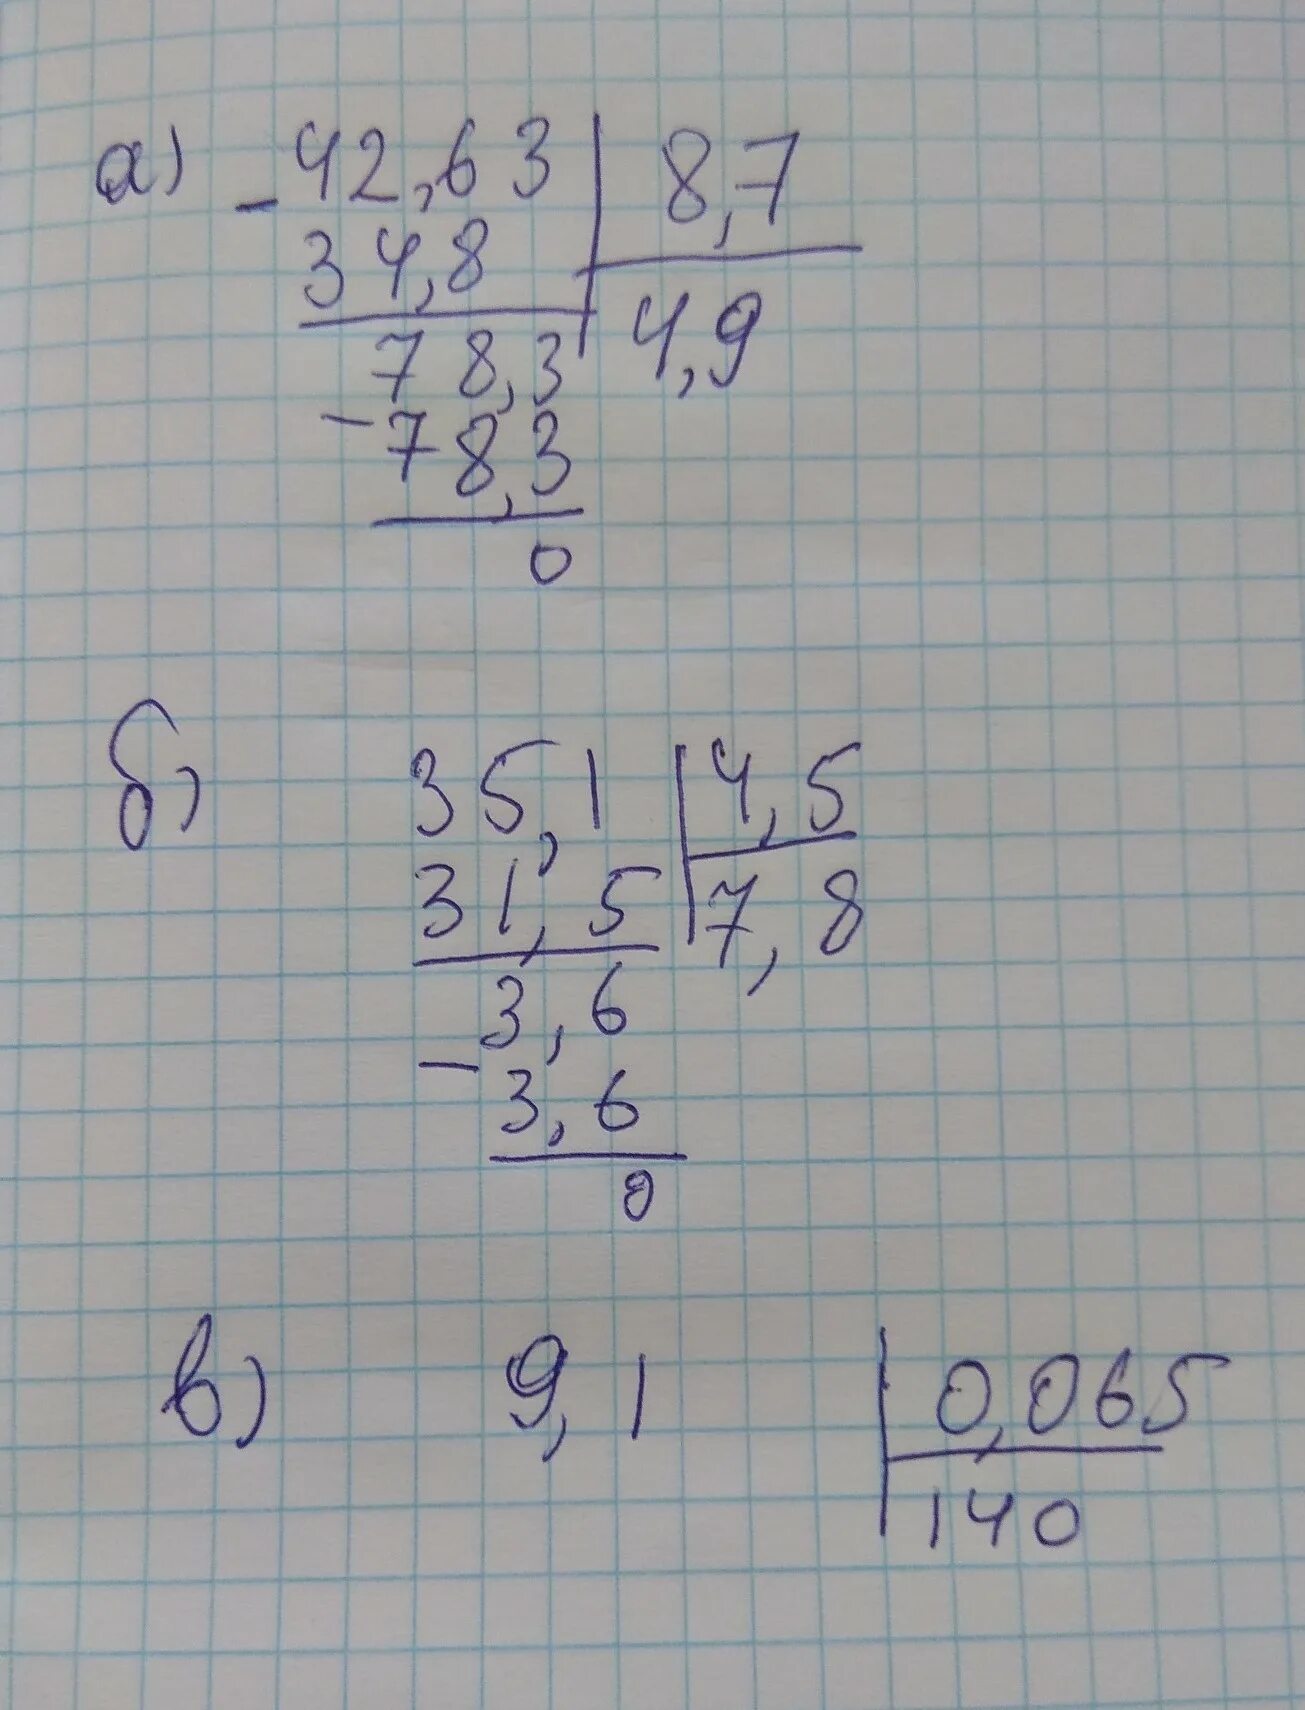 а) - 42,63 | 8,7
34,8 | 4,9
78,3
- 78,3
0
б) 35,1 | 4,5
31,5 | 7,8
3,6
- 3,6
0
в) 9,1 | 0,065
140